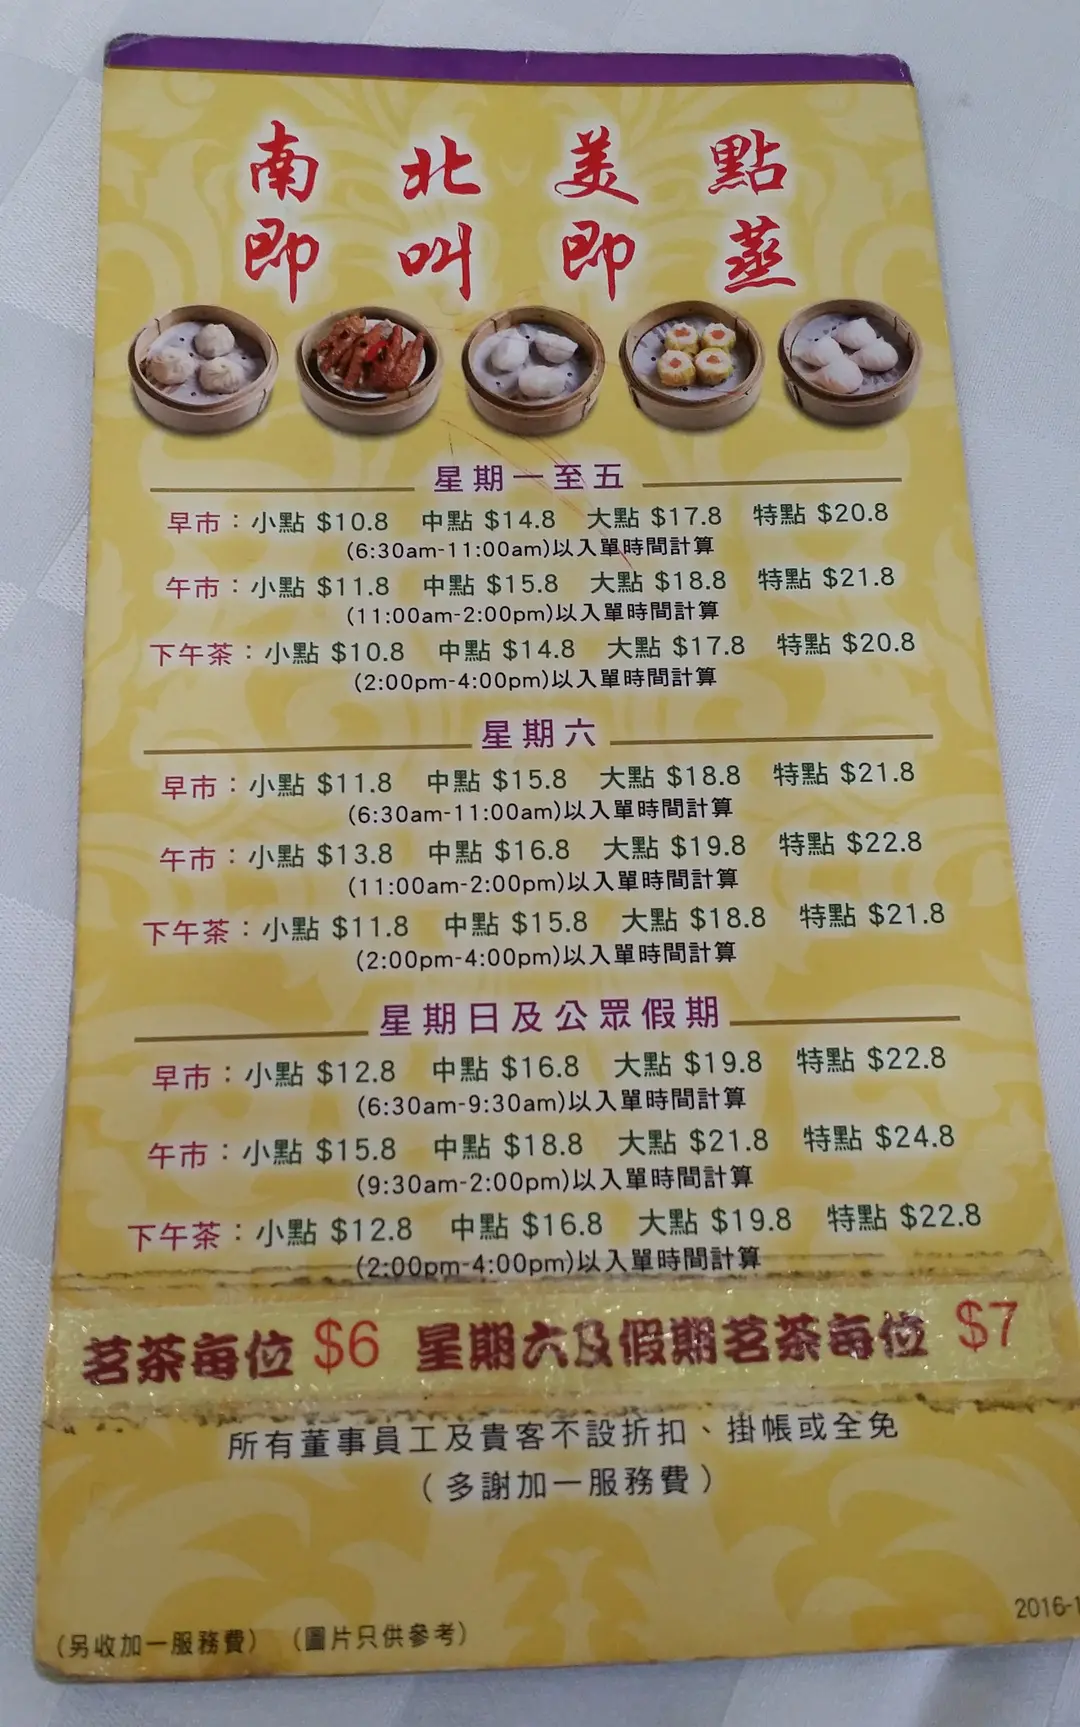 南北美點
即叫即蒸
星期一至五
早市：小點 $10.8 中點 $14.8 大點 $17.8 特點 $20.8
(6:30am-11:00am)以入單時間計算
午市：小點 $11.8 中點 $15.8 大點 $18.8 特點 $21.8
(11:00am-2:00pm)以入單時間計算
下午茶：小點 $10.8 中點 $14.8 大點 $17.8 特點 $20.8
(2:00pm-4:00pm)以入單時間計算
星期六
早市：小點 $11.8 中點 $15.8 大點 $18.8 特點 $21.8
(6:30am-11:00am)以入單時間計算
午市：小點 $13.8 中點 $16.8 大點 $19.8 特點 $22.8
(11:00am-2:00pm)以入單時間計算
下午茶：小點 $11.8 中點 $15.8 大點 $18.8 特點 $21.8
(2:00pm-4:00pm)以入單時間計算
星期日及公眾假期
早市：小點 $12.8 中點 $16.8 大點 $19.8 特點 $22.8
(6:30am-9:30am)以入單時間計算
午市：小點 $15.8 中點 $18.8 大點 $21.8 特點 $24.8
(9:30am-2:00pm)以入單時間計算
下午茶：小點 $12.8 中點 $16.8 大點 $19.8 特點 $22.8
(2:00pm-4:00pm)以入單時間計算
茗茶每位 $6 星期六及假期茗茶每位 $7
所有董事員工及貴客不設折扣、掛帳或全免
（多謝加一服務費）
2016-1
（另收加一服務費）（圖片只供參考）